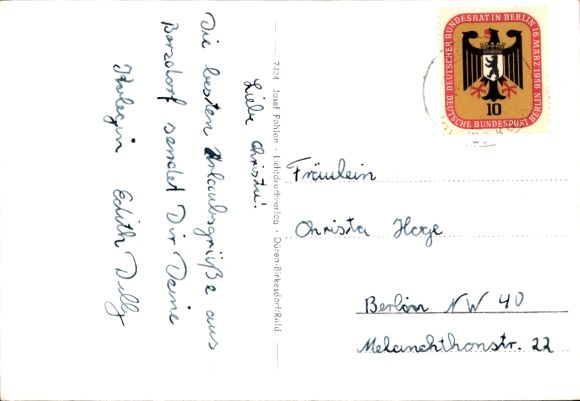 Liebe Christa!
Die besten Urlaubsgrüße aus
Borzdorf sendet Dir Deine
Kolegin Edith Dilly
7424 Josef Pohlen · Lichtdruckverlag · Düren-Birkesdorf/Rhld
DEUTSCHER BUNDESRAT IN BERLIN 16. MÄRZ 1956
10
DEUTSCHE BUNDESPOST BERLIN
Fräulein
Christa Hage
Berlin NW 40
Melanchthonstr. 22